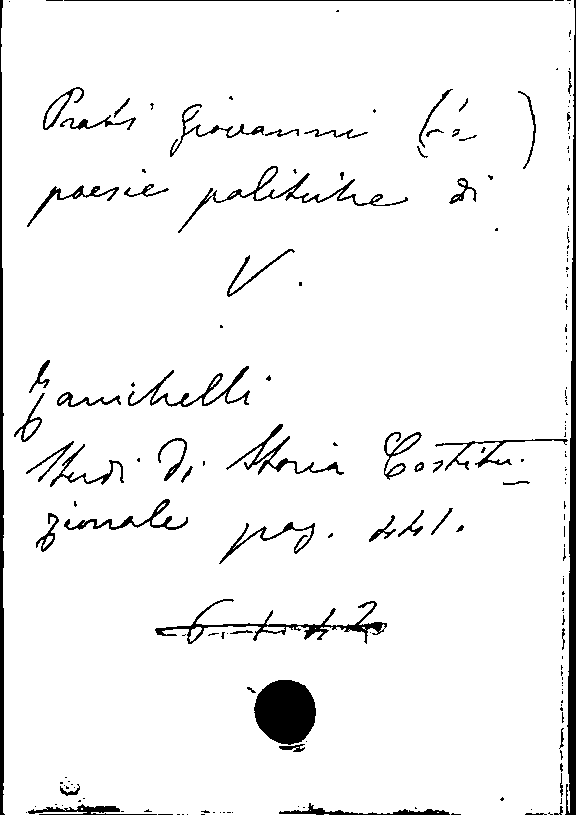 Prati Giovanni ( )
poesie politiche di
V.
Zanichelli
Studi di Storia Costitu-
zionale pag. 441.